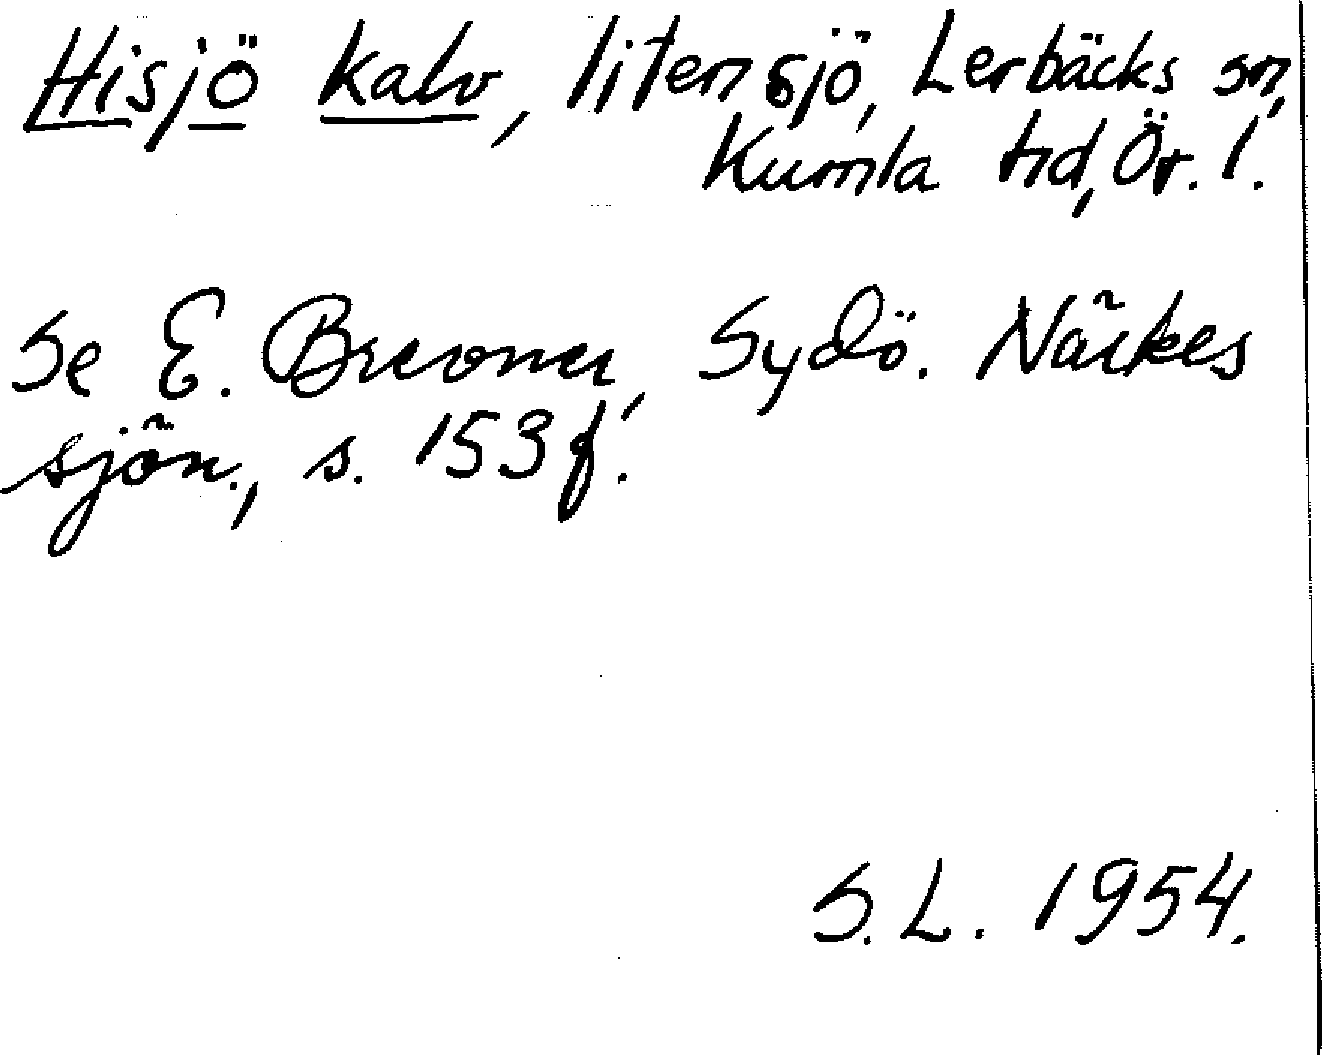 Hisjö kalv, liten sjö, Lerbäcks sn,
Kumla hd, Ör. l.
Se E. Brevner, Sydö. Närkes
sjön., s. 153 f.
S. L. 1954.